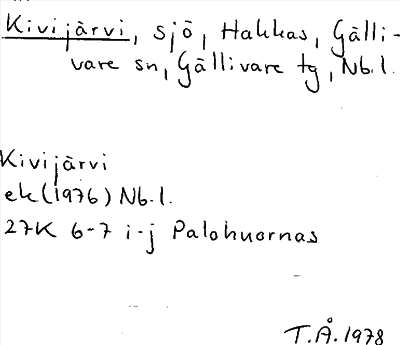 Kivijärvi, sjö, Hakkas, Gälli-
vare sn, Gällivare tg, Nb.l.
Kivijärvi
ek(1976) Nb.l.
27K 6-7 i-j Palohuornas
T.Å.1978